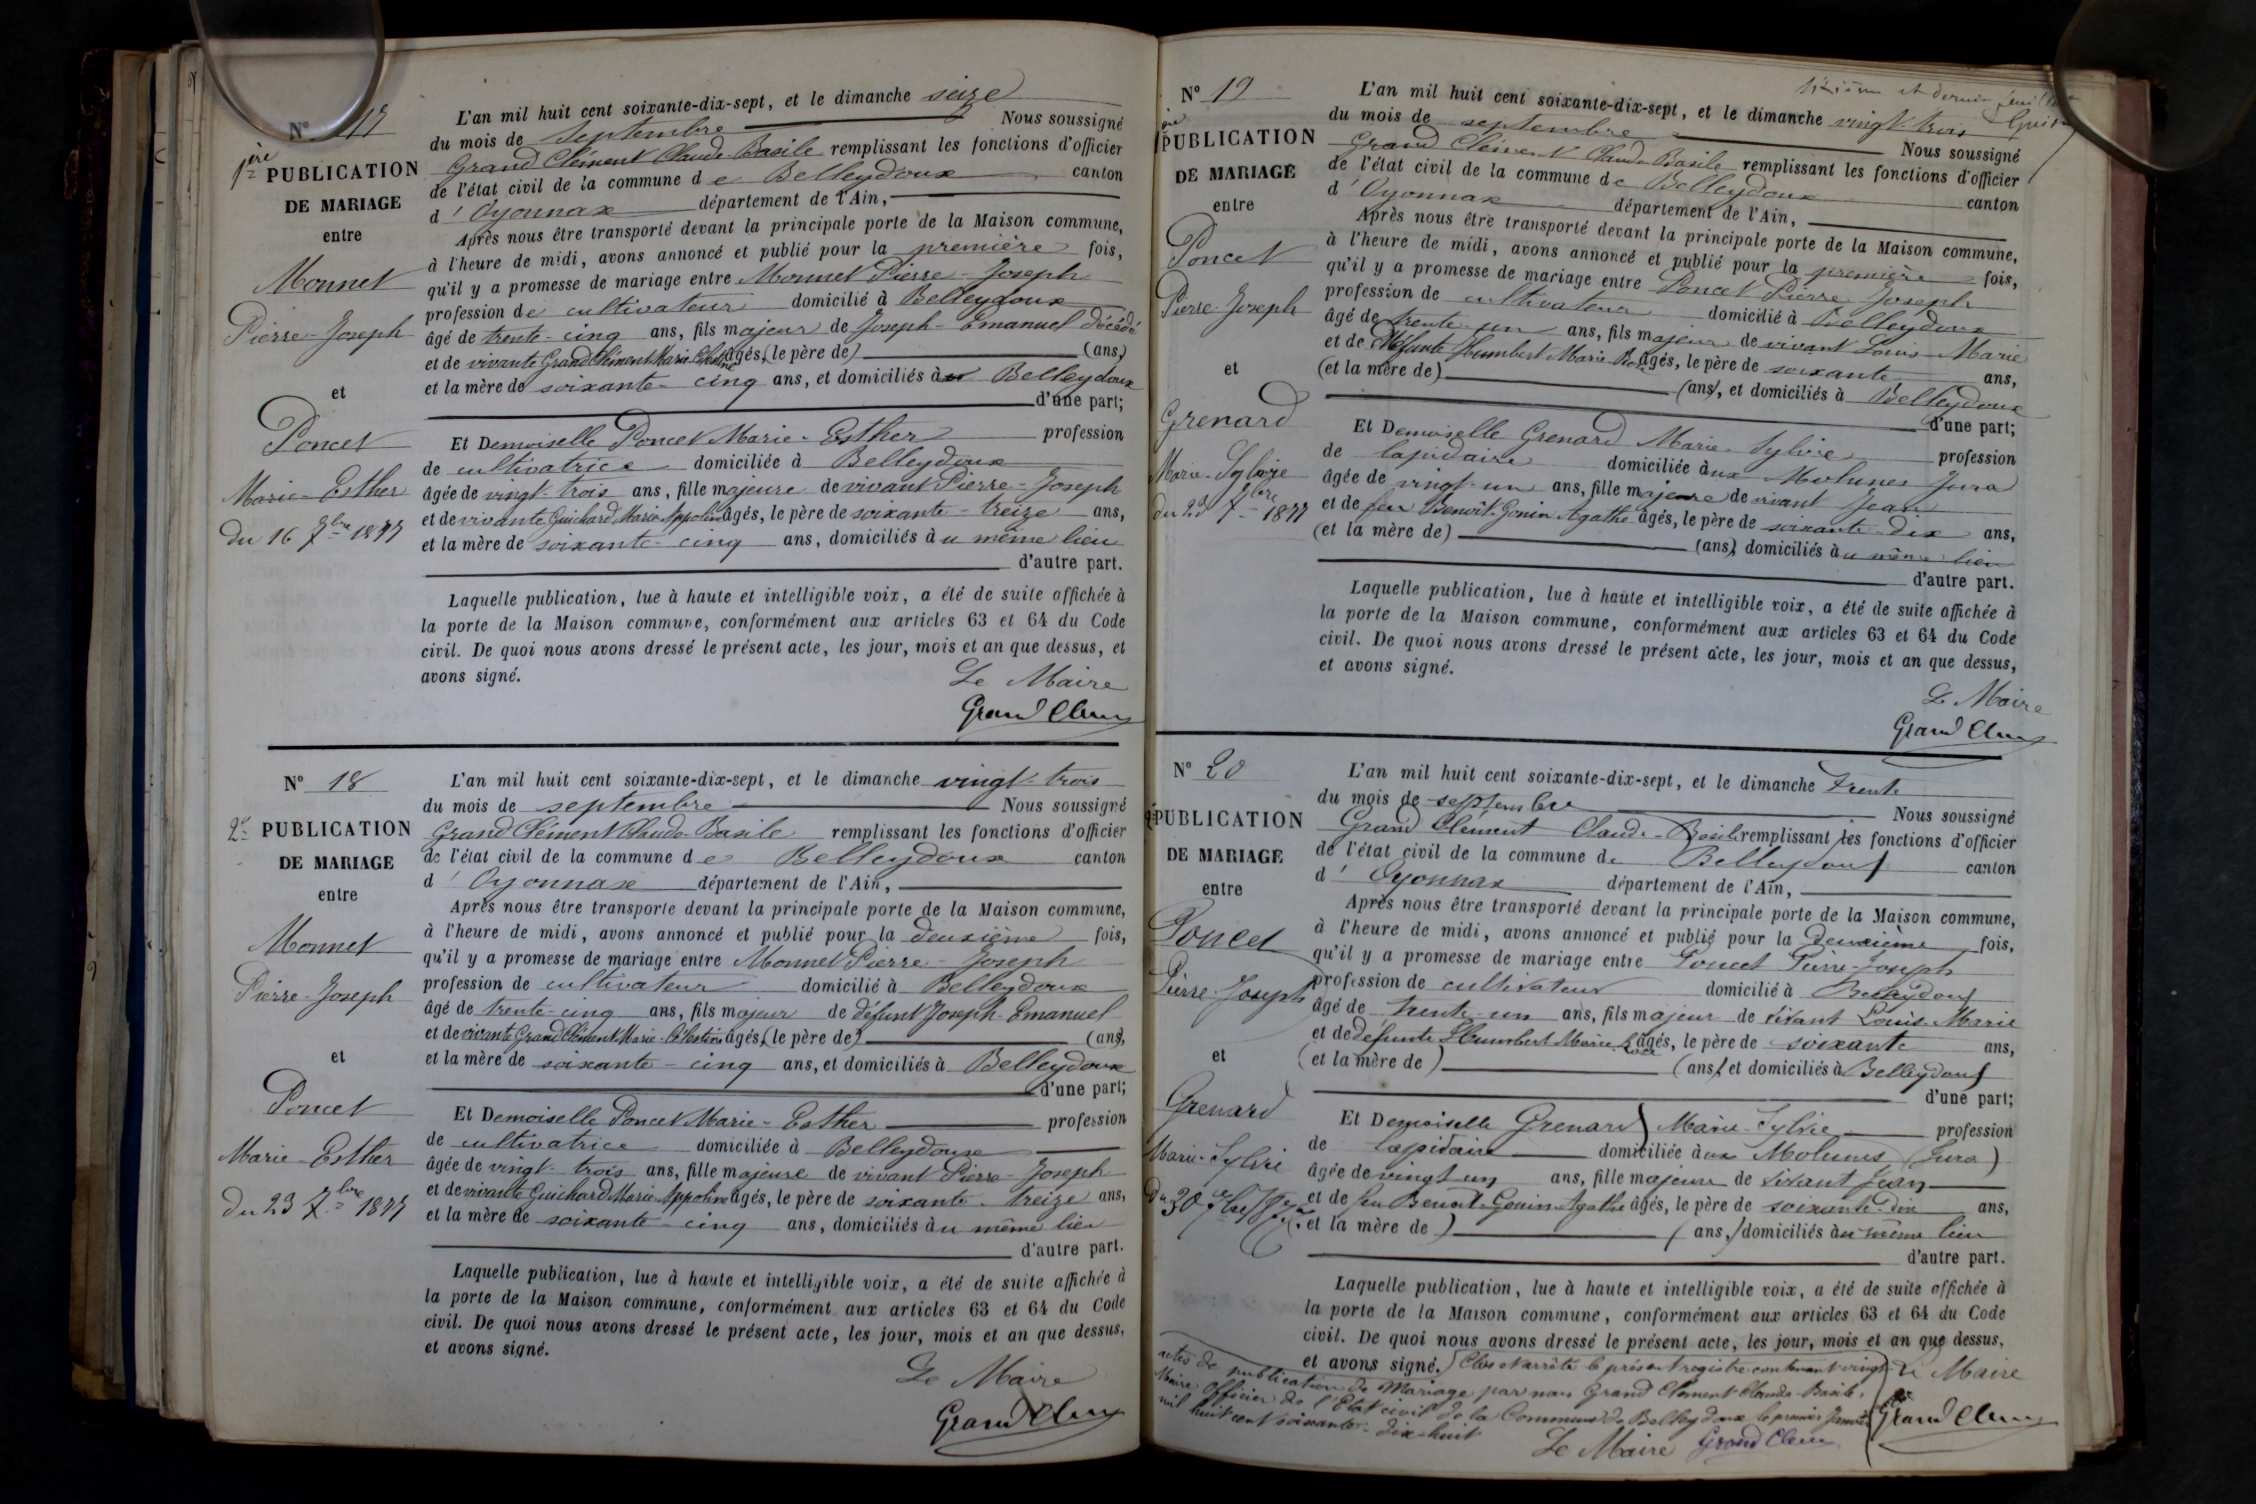 N° 17
1ère PUBLICATION
DE MARIAGE
entre
Monnet
Pierre-Joseph
et
Poncet
Marie-Esther
Du 16 7bre 1877
L'an mil huit cent soixante-dix-sept, et le dimanche seize
du mois de septembre Nous soussigné
Grand Clément Claude Basile remplissant les fonctions d'officier
de l'état civil de la commune de Belleydoux canton
d'Oyonnax département de l'Ain,
Après nous être transporté devant la principale porte de la Maison commune,
à l'heure de midi, avons annoncé et publié pour la première fois,
qu'il y a promesse de mariage entre Monnet Pierre-Joseph
profession de cultivateur domicilié à Belleydoux
âgé de trente-cinq ans, fils majeur de Joseph-Emanuel décédé
et de vivante Grand Clément Marie Célestine âgés, (le père de) (ans,)
et la mère de soixante-cinq ans, et domiciliés à Belleydoux
d'une part;
Et Demoiselle Poncet Marie-Esther profession
de cultivatrice domiciliée à Belleydoux
âgée de vingt-trois ans, fille majeure de vivant Pierre-Joseph
et de vivante Guichard Marie Appoline âgés, le père de soixante-treize ans,
et la mère de soixante-cinq ans, domiciliés au même lieu
d'autre part.
Laquelle publication, lue à haute et intelligible voix, a été de suite affichée à
la porte de la Maison commune, conformément aux articles 63 et 64 du Code
civil. De quoi nous avons dressé le présent acte, les jour, mois et an que dessus, et
avons signé.
Le Maire
Grand Clem
N° 18
2e PUBLICATION
DE MARIAGE
entre
Monnet
Pierre-Joseph
et
Poncet
Marie-Esther
Du 23 7bre 1877
L'an mil huit cent soixante-dix-sept, et le dimanche vingt-trois
du mois de septembre Nous soussigné
Grand Clément Claude Basile remplissant les fonctions d'officier
de l'état civil de la commune de Belleydoux canton
d'Oyonnax département de l'Ain,
Après nous être transporté devant la principale porte de la Maison commune,
à l'heure de midi, avons annoncé et publié pour la deuxième fois,
qu'il y a promesse de mariage entre Monnet Pierre-Joseph
profession de cultivateur domicilié à Belleydoux
âgé de trente-cinq ans, fils majeur de défunt Joseph-Emanuel
et de vivante Grand Clément Marie-Célestine âgés, (le père de) (ans),
et la mère de soixante-cinq ans, et domiciliés à Belleydoux
d'une part;
Et Demoiselle Poncet Marie-Esther profession
de cultivatrice domiciliée à Belleydoux
âgée de vingt-trois ans, fille majeure de vivant Pierre-Joseph
et de vivante Guichard Marie Appoline âgés, le père de soixante-treize ans,
et la mère de soixante-cinq ans, domiciliés au même lieu
d'autre part.
Laquelle publication, lue à haute et intelligible voix, a été de suite affichée à
la porte de la Maison commune, conformément aux articles 63 et 64 du Code
civil. De quoi nous avons dressé le présent acte, les jour, mois et an que dessus,
et avons signé.
Le Maire
Grand Clem
et dernier feuillet
N° 19
1ère PUBLICATION
DE MARIAGE
entre
Poncet
Pierre-Joseph
et
Grenard
Marie-Sylvie
Du 23 7bre 1877
L'an mil huit cent soixante-dix-sept, et le dimanche vingt-trois
du mois de septembre Nous soussigné
Grand Clément Claude Basile remplissant les fonctions d'officier
de l'état civil de la commune de Belleydoux canton
d'Oyonnax département de l'Ain,
Après nous être transporté devant la principale porte de la Maison commune,
à l'heure de midi, avons annoncé et publié pour la première fois,
qu'il y a promesse de mariage entre Poncet Pierre Joseph
profession de cultivateur domicilié à Belleydoux
âgé de trente-un ans, fils majeur de vivant Louis-Marie
et de défunte Humbert Marie Rose âgés, le père de soixante ans,
(et la mère de) (ans), et domiciliés à Belleydoux
d'une part;
Et Demoiselle Grenard Marie-Sylvie profession
de lapidaire domiciliée aux Molunes Jura
âgée de vingt-un ans, fille majeure de vivant Jean
et de feu Benoit-Gonin Agathe âgés, le père de soixante-dix ans,
(et la mère de) (ans) domiciliés au même lieu
d'autre part.
Laquelle publication, lue à haute et intelligible voix, a été de suite affichée à
la porte de la Maison commune, conformément aux articles 63 et 64 du Code
civil. De quoi nous avons dressé le présent acte, les jour, mois et an que dessus,
et avons signé.
Le Maire
Grand Clem
N° 20
2e PUBLICATION
DE MARIAGE
entre
Poncet
Pierre-Joseph
et
Grenard
Marie-Sylvie
Du 30 7bre 1877
L'an mil huit cent soixante-dix-sept, et le dimanche Trente
du mois de septembre Nous soussigné
Grand Clément Claude-Basile remplissant les fonctions d'officier
de l'état civil de la commune de Belleydoux canton
d'Oyonnax département de l'Ain,
Après nous être transporté devant la principale porte de la Maison commune,
à l'heure de midi, avons annoncé et publié pour la Deuxième fois,
qu'il y a promesse de mariage entre Poncet Pierre-Joseph
profession de cultivateur domicilié à Belleydoux
âgé de trente-un ans, fils majeur de vivant Louis-Marie
et de défunte Humbert Marie Rose âgés, le père de soixante ans,
(et la mère de) (ans) et domiciliés à Belleydoux
d'une part;
Et Demoiselle Grenard Marie-Sylvie profession
de lapidaire domiciliée aux Molunes (Jura)
âgée de vingt un ans, fille majeure de vivant Jean
et de feu Benoit-Gonin Agathe âgés, le père de soixante-dix ans,
(et la mère de) (ans,) domiciliés au même lieu
d'autre part.
Laquelle publication, lue à haute et intelligible voix, a été de suite affichée à
la porte de la Maison commune, conformément aux articles 63 et 64 du Code
civil. De quoi nous avons dressé le présent acte, les jour, mois et an que dessus,
et avons signé. Clos et arrêté le présent registre contenant vingt
actes de publication de Mariage par nous Grand Clément Claude-Basile,
Maire officier de l'Etat civil de la Commune de Belleydoux le premier Janvier
mil huit cent soixante-dix-huit
Le Maire
Grand Clem
Le Maire Grand Clem